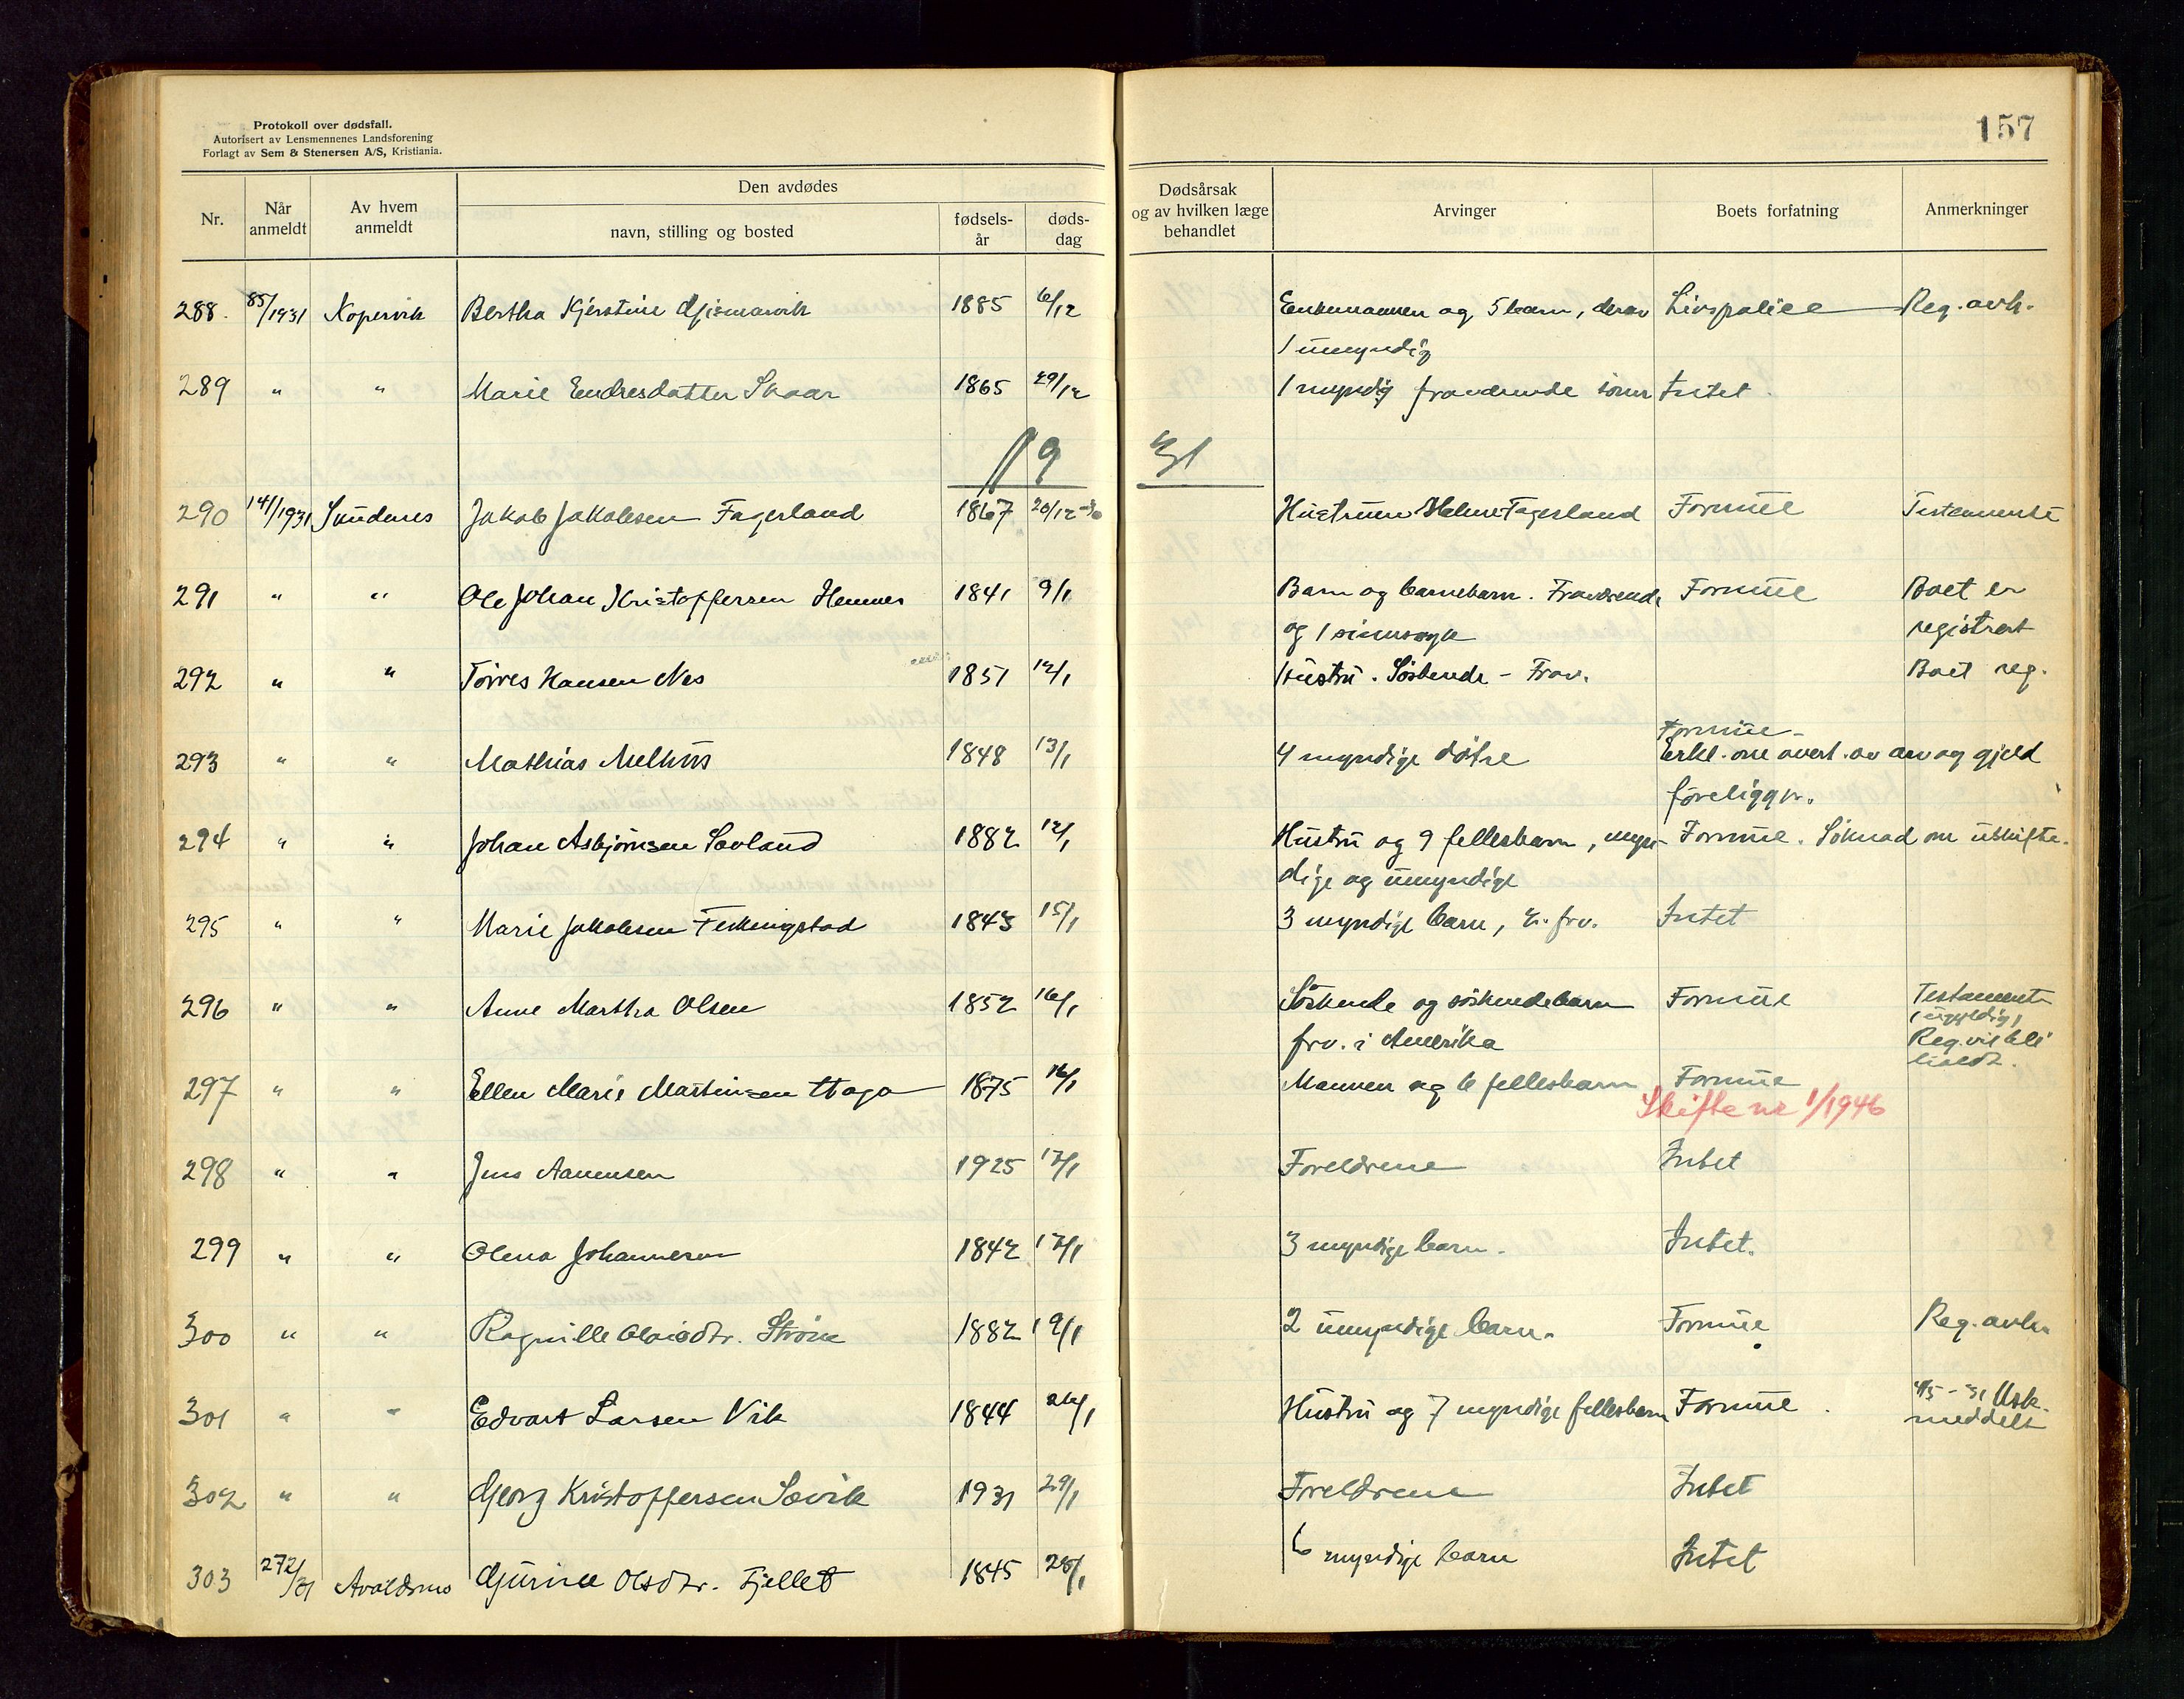 Protokoll over dødsfall.
Autorisert av Lensmennenes Landsforening
Forlagt av Sem & Stenersen A/S, Kristiania.
157
Nr.
Når anmeldt
Av hvem anmeldt
Den avdødes
navn, stilling og bosted
fødsels-år
døds-dag
Dødsårsak og av hvilken læge behandlet
Arvinger
Boets forfatning
Anmerkninger
288. 85/1931 Kopervik Bertha Kjerstine Gjismarvik 1885 6/12 Enkemannen og 5 barn, derav Livspolice Reg. avh.
1 umyndig
289 " " Marie Endresdatter Skaar 1865 29/12 1 myndig fraværende sønn Intet.
19 31
290 141/1931 Skudenes Jakob Jakobsen Fagerland 1867 20/12-30 Hustruen Helene Fagerland Formue Testamente
291 " " Ole Johan Kristoffersen Hemnes 1841 9/1 Barn og barnebarn. Fraværende Formue Boet er
og 1 sinnssyk registrert
292 " " Tørres Hansen Nes 1851 12/1 Hustru. Søskende - Frav. Boet reg.
Formue-
293 " " Mathias Melhus 1848 13/1 4 myndige døtre Erkl. om overt. av arv og gjeld
foreligger.
294 " " Johan Asbjørnsen Sævland 1882 12/1 Hustru og 9 fellesbarn, myn- Formue. Søknad om uskifte.
dige og umyndige
295 " " Marie Jakobsen Ferkingstad 1843 15/1 3 myndige barn, frv. Intet
296 " " Anne Martha Olsen 1852 16/1 Søskende og søskendebarn Formue Testament
(ugyldig)
frv. i Amerika Reg. vil bli
holdt.
297 " " Ellen Marie Martinsen Haga 1875 16/1 Mannen og 6 fellesbarn Formue
Skifte nr 1/1946
298 " " Jens Aamensen 1925 17/1 Foreldrene Intet
299 " " Olena Johannesen 1842 17/1 3 myndige barn. Intet.
300 " " Ragnille Olaisdtr. Strøm 1882 19/1 2 umyndige barn. Formue Reg. avh.
301 " " Edvart Larsen Vik 1844 26/1 Hustru og 7 myndige fellesbarn Formue. 4/5-31 Usk.
meddelt
302 " " Georg Kristoffersen Sævik 1931 29/1 Foreldrene Intet
303 272/31 Avaldsnes Gjurine Olsdtr. Fjellet 1845 28/1 6 myndige barn Intet